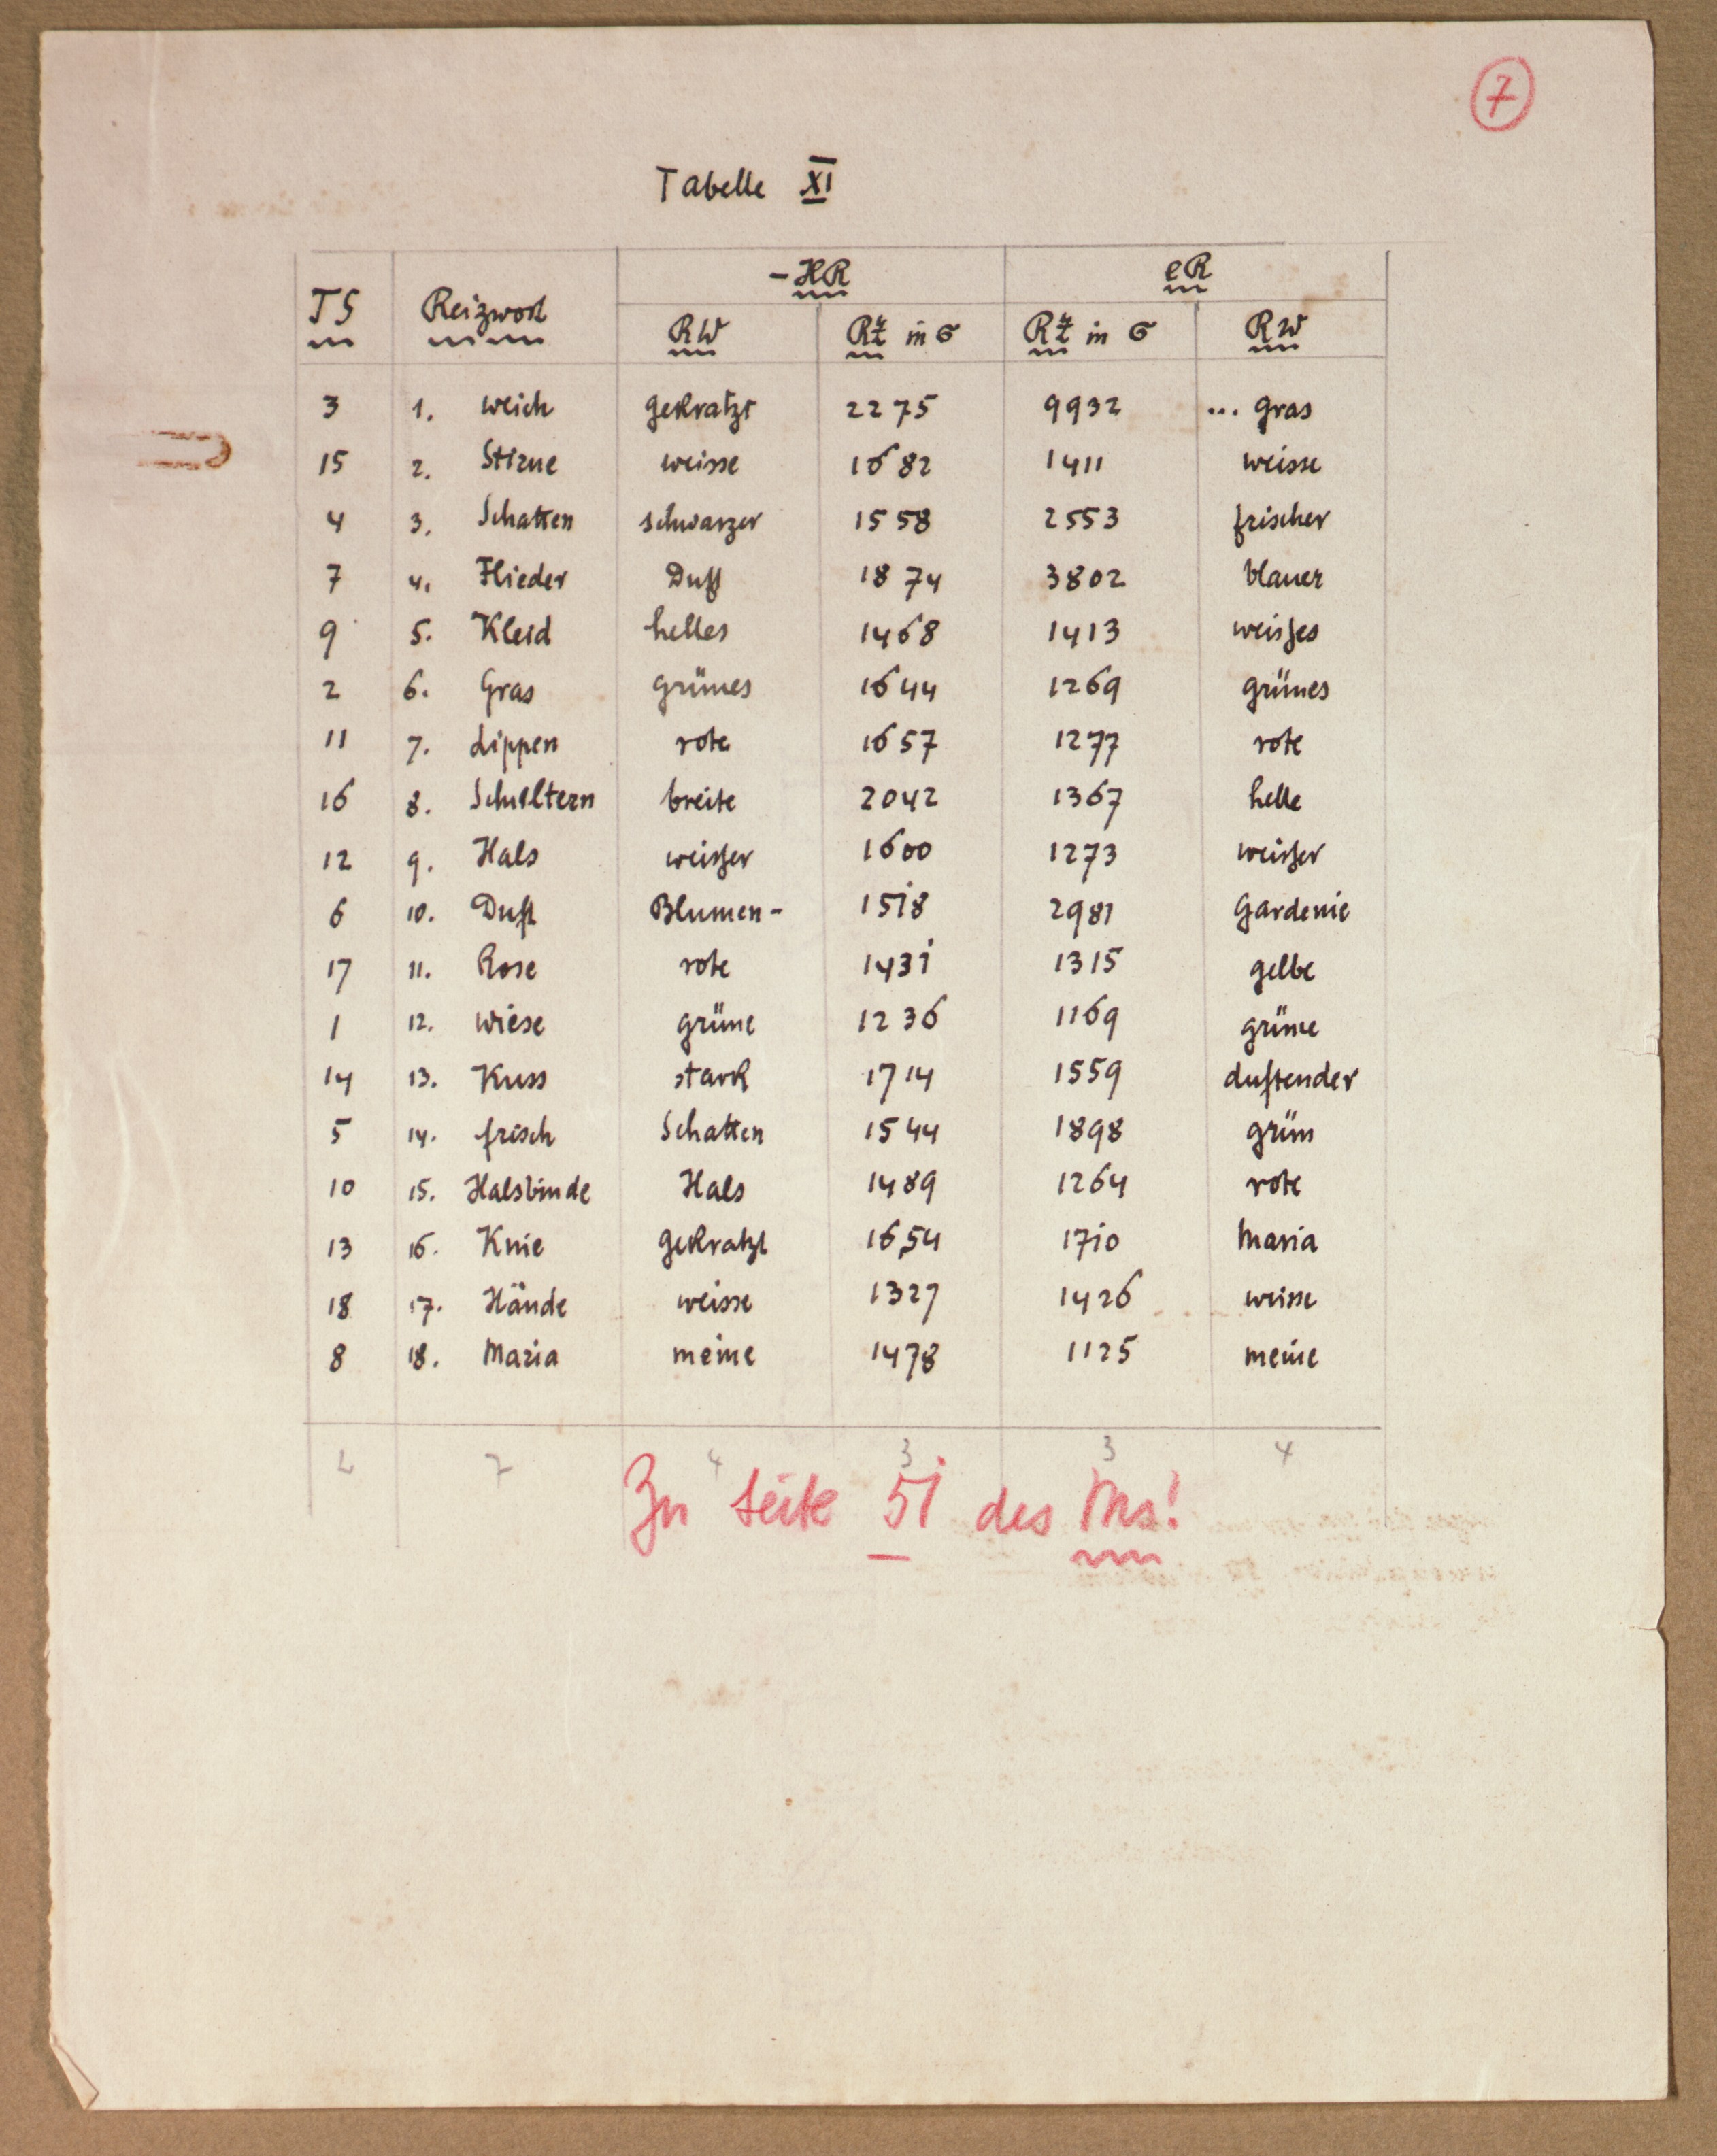 7
Tabelle XI
-HR eR
TS Reizwort RW Rz in σ Rz in σ RW
3 1. weich gekratzt 2275 9932 ... gras
15 2. Stirne weisse 1682 1411 weisse
4 3. Schatten schwarzer 1558 2553 frischer
7 4. Flieder Duft 1874 3802 blauer
9 5. Kleid helles 1468 1413 weißes
2 6. Gras grünes 1644 1269 grünes
11 7. Lippen rote 1657 1277 rote
16 8. Schultern breite 2042 1367 helle
12 9. Hals weißer 1600 1273 weißer
6 10. Duft Blumen- 1518 2981 Gardenie
17 11. Rose rote 1431 1315 gelbe
1 12. Wiese grüne 1236 1169 grüne
14 13. Kuss stark 1714 1559 duftender
5 14. frisch Schatten 1544 1898 grün
10 15. Halsbinde Hals 1489 1264 rote
13 16. Knie gekratzt 1654 1710 Maria
18 17. Hände weisse 1327 1426 weisse
8 18. Maria meine 1478 1125 meine
7 4 3 3 4
Zu Seite 51 des Ms!